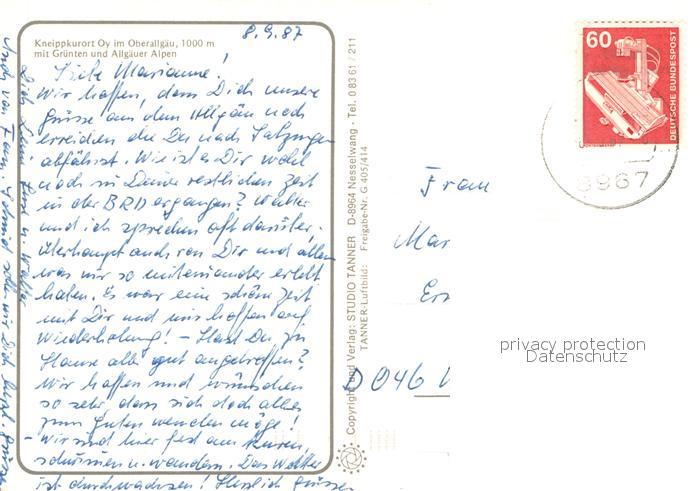 8.9.87
Kneippkurort Oy im Oberallgäu, 1000 m
mit Grünten und Allgäuer Alpen
Liebe Marianne!
Wir hoffen, dass Dich unsere
Grüsse aus dem Allgäu noch
erreichen ehe Du nach Salzungen
abfährst. Wie ist es Dir wohl
noch in Deiner restlichen Zeit
in der BRD ergangen? Walter
und ich sprechen oft darüber,
überhaupt auch von Dir und allem
was wir so miteinander erlebt
haben. Es war eine schöne Zeit
mit Dir und wir hoffen auf
Wiederholung! - Hast Du zu
Hause alle gut angetroffen?
Wir hoffen und wünschen
so sehr, dass sich doch alles
zum Guten wenden möge!
- Wir sind hier fest am Kuren,
schwimmen u. wandern. Das Wetter
ist durchwachsen! Herzlich grüssen
Dich u. Walter
Auch von Fam. Schmid sollen wir Dich herzl. grüssen
Copyright und Verlag: STUDIO TANNER D-8964 Nesselwang - Tel. 0 83 61 / 211
TANNER-Luftbild: Freigabe-Nr. G 405/414
60
DEUTSCHE BUNDESPOST
8967
Frau
Mar
D 046
privacy protection
Datenschutz